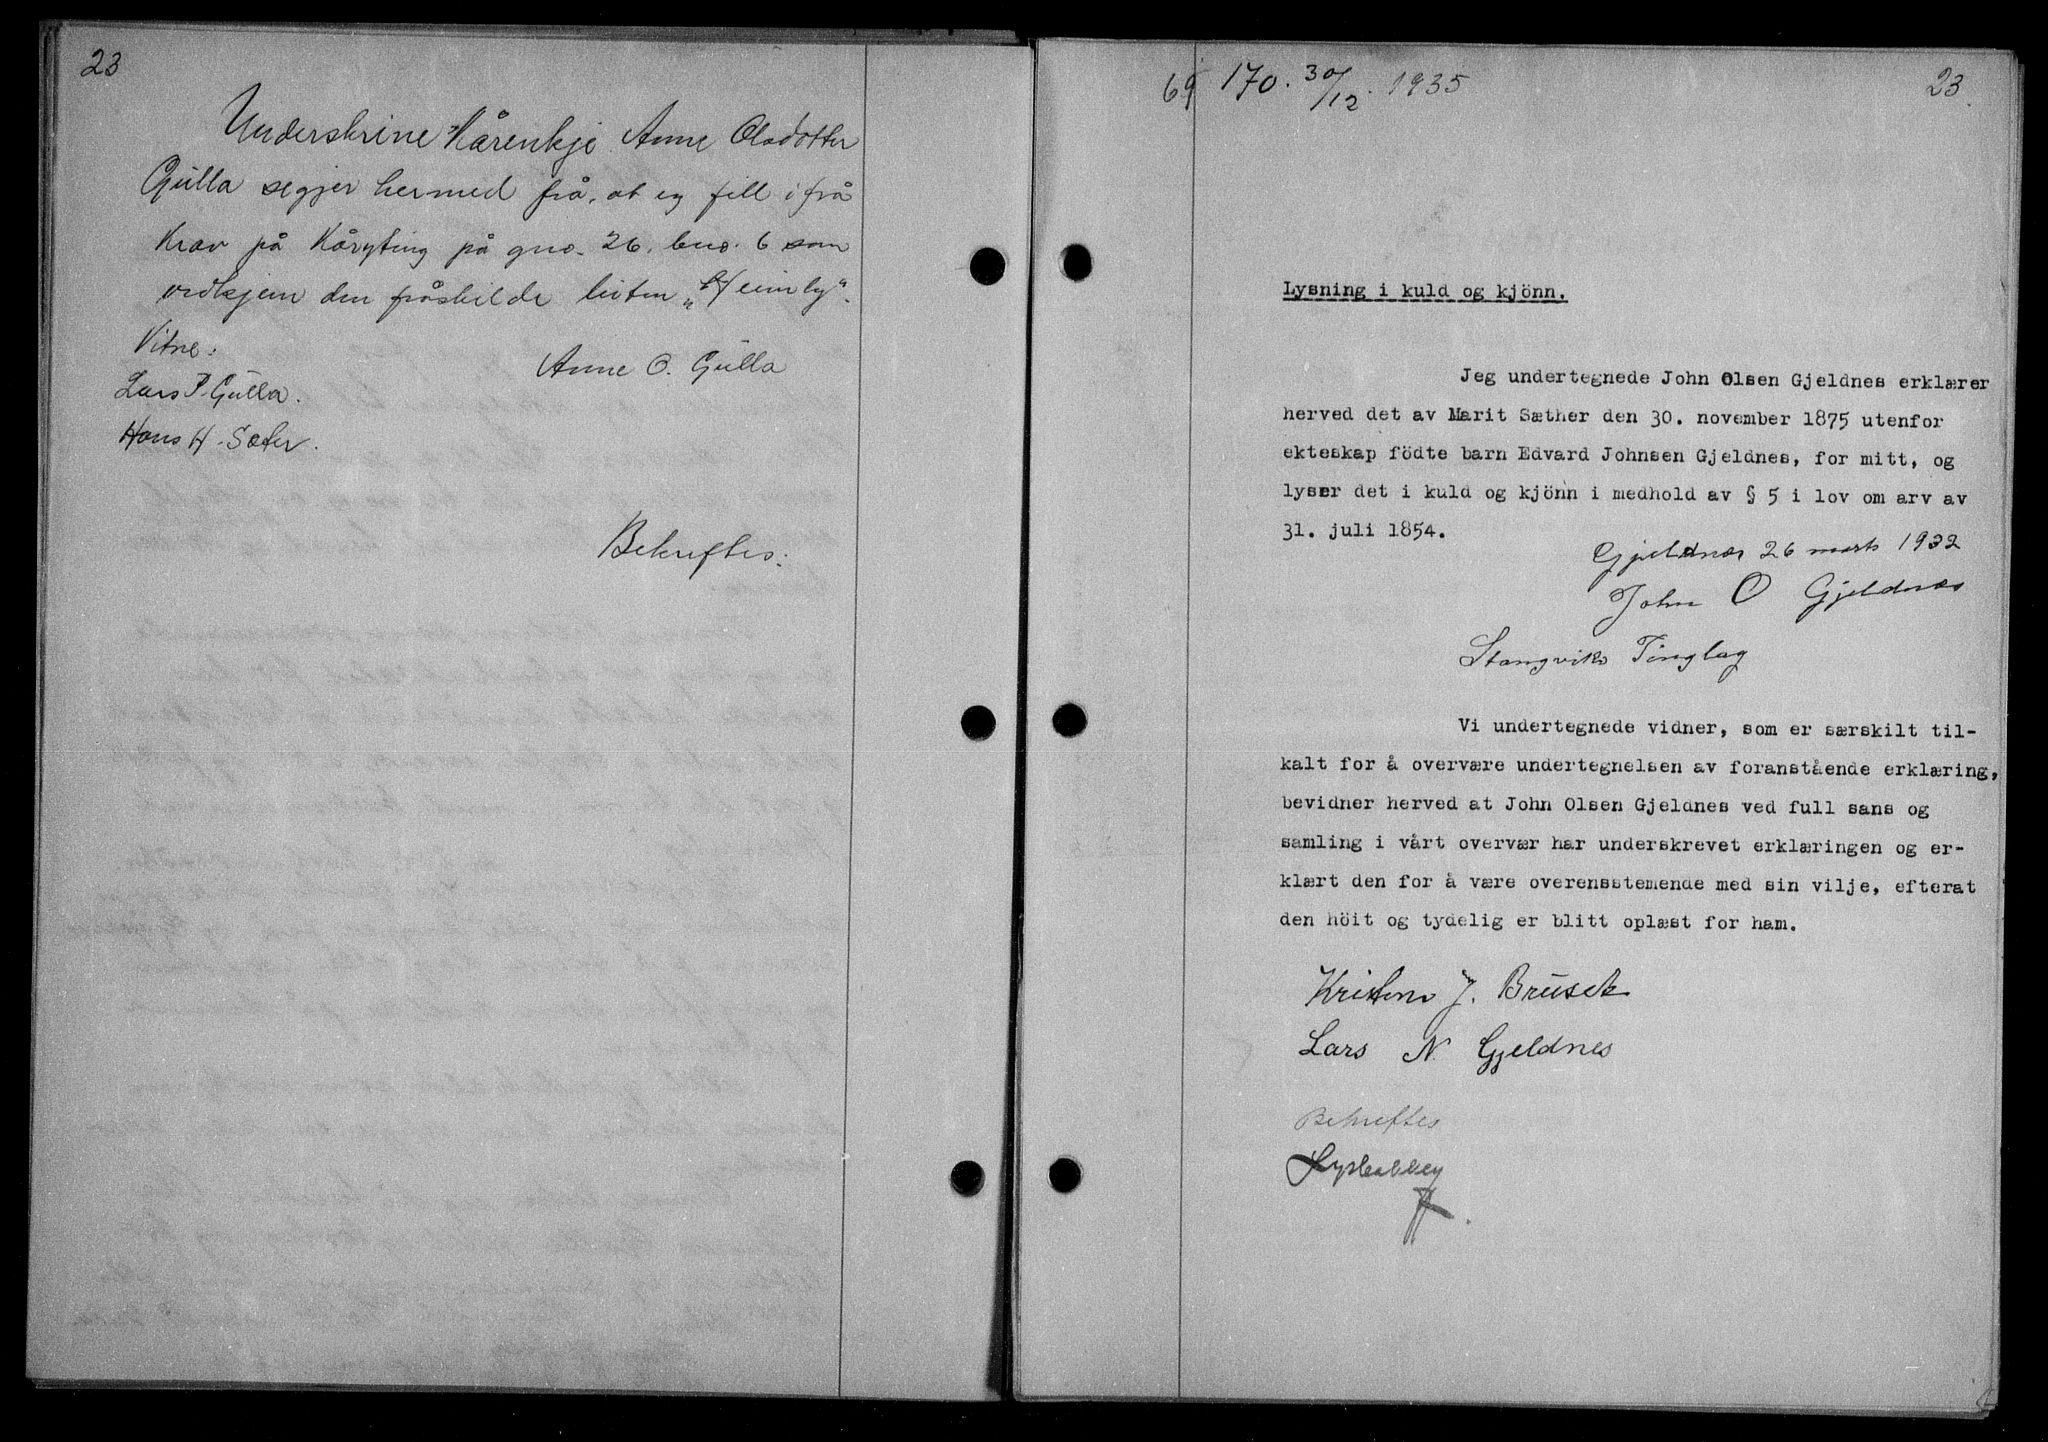 23
Underskrine Kårenkje Anne Olsdotter
Gulla segjer hermed frå, at eg fell ifrå
Krav på Kårytíng på gno. 26, bno. 6 som
vedkjem den fråskilde luten „Heimly".
Vitne:
Anne O. Gulla
Lars P. Gulla.
Hans H. Sæter.
Bekreftes:
69 170. 30/12. 1935
23
Lysning i kuld og kjönn.
Jeg undertegnede John Olsen Gjeldnes erklærer
herved det av Marit Sæther den 30. november 1875 utenfor
ekteskap födte barn Edvard Johnsen Gjeldnes, for mitt, og
lyser det i kuld og kjönn i medhold av § 5 i lov om arv av
31. juli 1854.
Gjeldnes 26 marts 1932
John O Gjeldnes
Stangviks Tinglag
Vi undertegnede vidner, som er særskilt til-
kalt for å overvære undertegnelsen av foranstående erklæring,
bevidner herved at John Olsen Gjeldnes ved full sans og
samling i vårt overvær har underskrevet erklæringen og er-
klært den for å være overensstemende med sin vilje, efterat
den höit og tydelig er blitt oplæst for ham.
Kristen J. Bruset
Lars N. Gjeldnes
Bekreftes